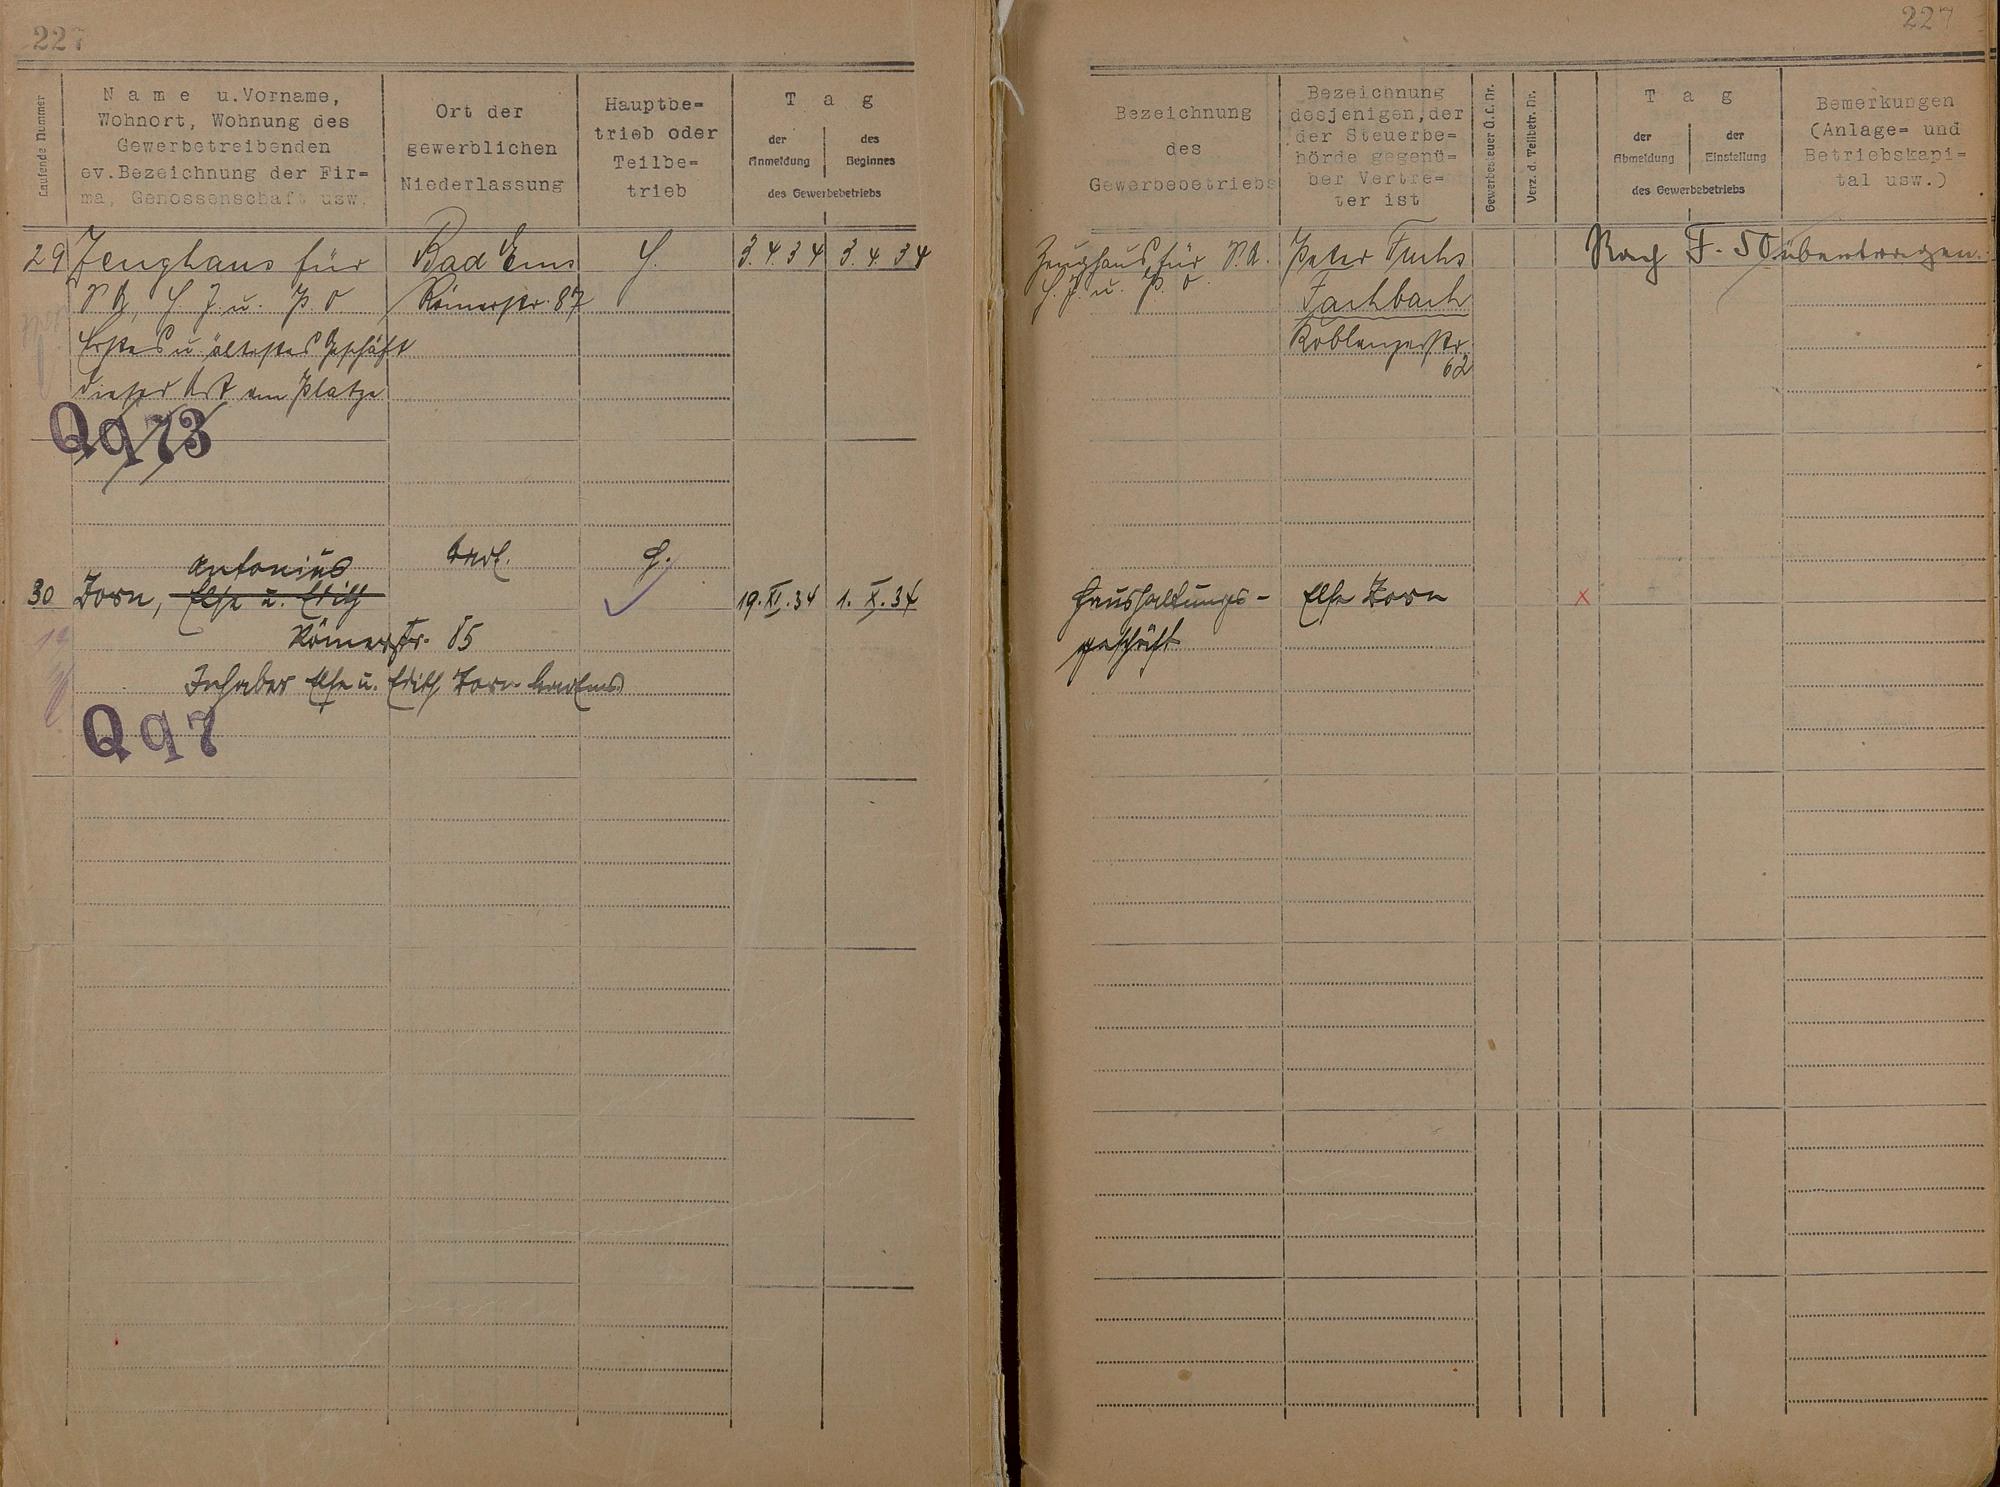 227
Laufende Nummer
Name u.Vorname,
Wohnort, Wohnung des
Gewerbetreibenden
ev.Bezeichnung der Fir=
ma, Genossenschaft usw.
Ort der
gewerblichen
Niederlassung
Hauptbe=
trieb oder
Teilbe=
trieb
Tag
der
Anmeldung
des
Beginnes
des Gewerbebetriebs
29 Zeughaus für
S A, H J. u. P. O
Erstes u. ältestes Geschäft
dieser Art am Platze
Bad Ems
Römerstr. 87
H.
3. 4. 34
3. 4. 34
Qq73
30 Zorn, Antonius
Else u. Edith
Römerstr. 85
Inhaber Else u. Edith Zorn
H.
19. XI. 34
1. X. 34
Qq7
227
Bezeichnung
des
Gewerbebetriebs
Bezeichnung
desjenigen, der
der Steuerbe=
hörde gegenü=
ber Vertre=
ter ist
Gewerbesteuer Ü.L. Nr.
Verz. d. Teilbetr. Nr.
Tag
der
Abmeldung
der
Einstellung
des Gewerbebetriebs
Bemerkungen
(Anlage= und
Betriebskapi=
tal usw.)
Zeughaus für S. A.
H. J. u. P. O.
Peter Fuchs
Fachbach
Koblenzerstr.
62
Nach F. 50 übertragen.
Haushaltungs-
geschäft
Else Zorn
x